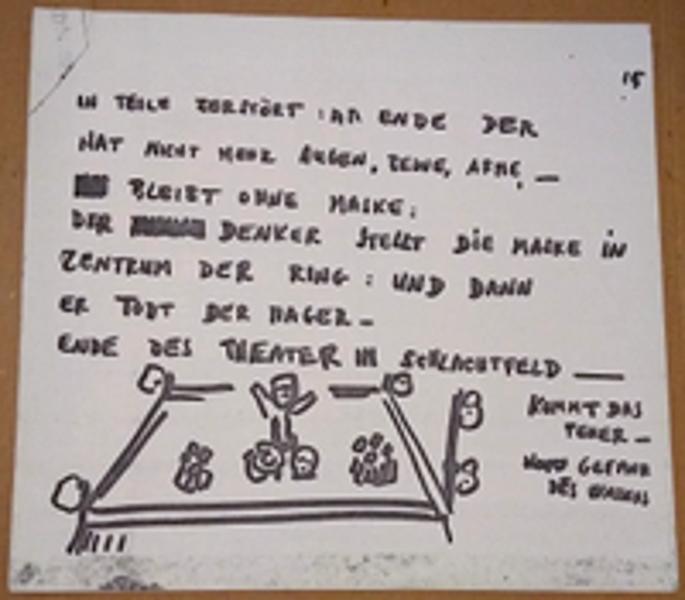 15
IN TEILE ZERSTÖRT : AM ENDE DER
HAT NICHT MEHR AUGEN, ZEHE, ARME, —
BLEIBT OHNE MASKE;
DER DENKER STELLT DIE MASKE IN
ZENTRUM DER RING : UND DANN
ER TODT DER
ENDE DES THEATER IM SCHLACHTFELD —
KOMMT DAS
GEFAHR
DES